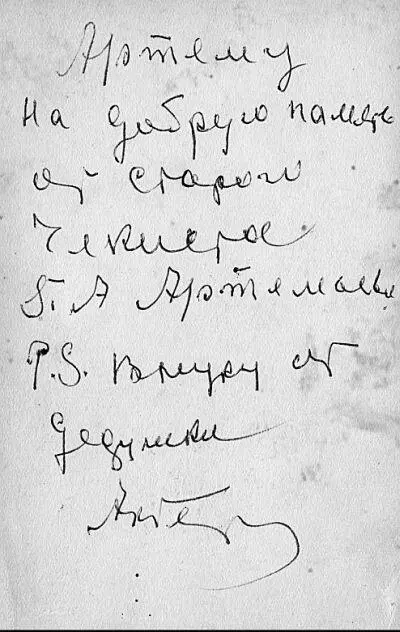 Артему
На добрую память
от старого
Чекиста
Б. А Артемьева
P.S. внуку от
дедушки